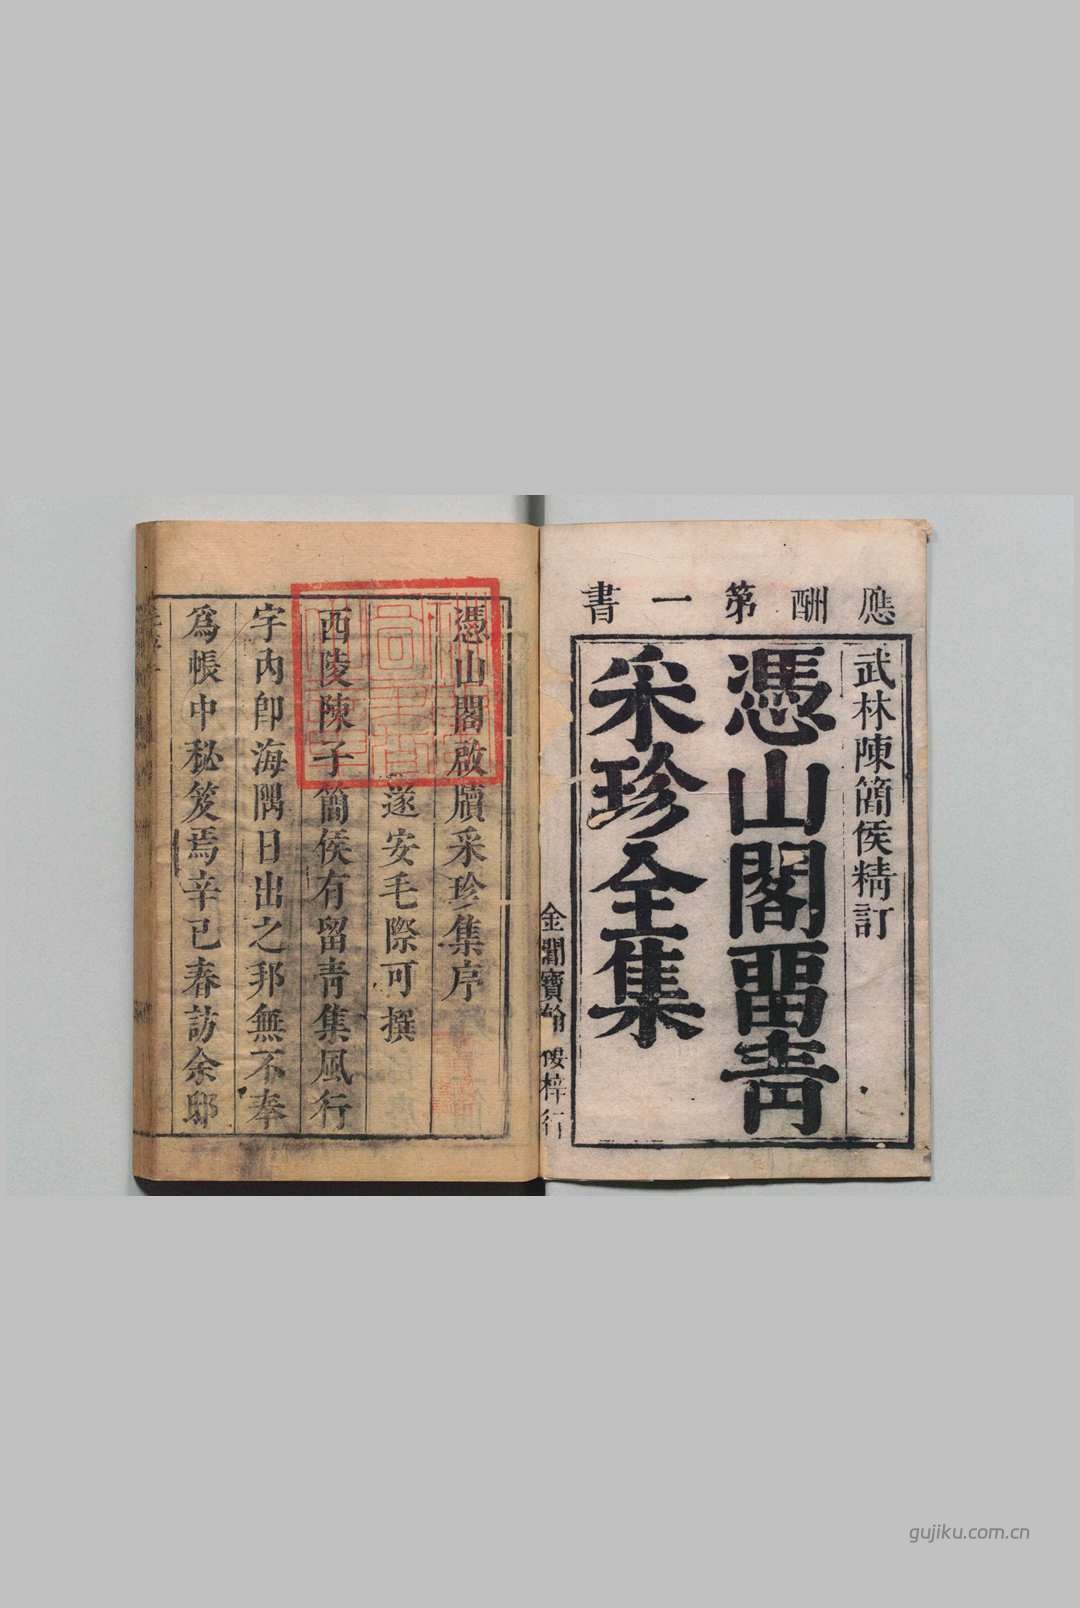 應酬第一書
武林陳簡侯精訂
憑山閣畱青
采珍全集
金閶寶翰樓梓行
憑山閣啟牘采珍集序
遂安毛際可撰
西陵陳子簡侯有留青集風行
宇內卽海隅日出之邦無不奉
爲帳中秘笈焉辛已春訪余邸
gujiku.com.cn